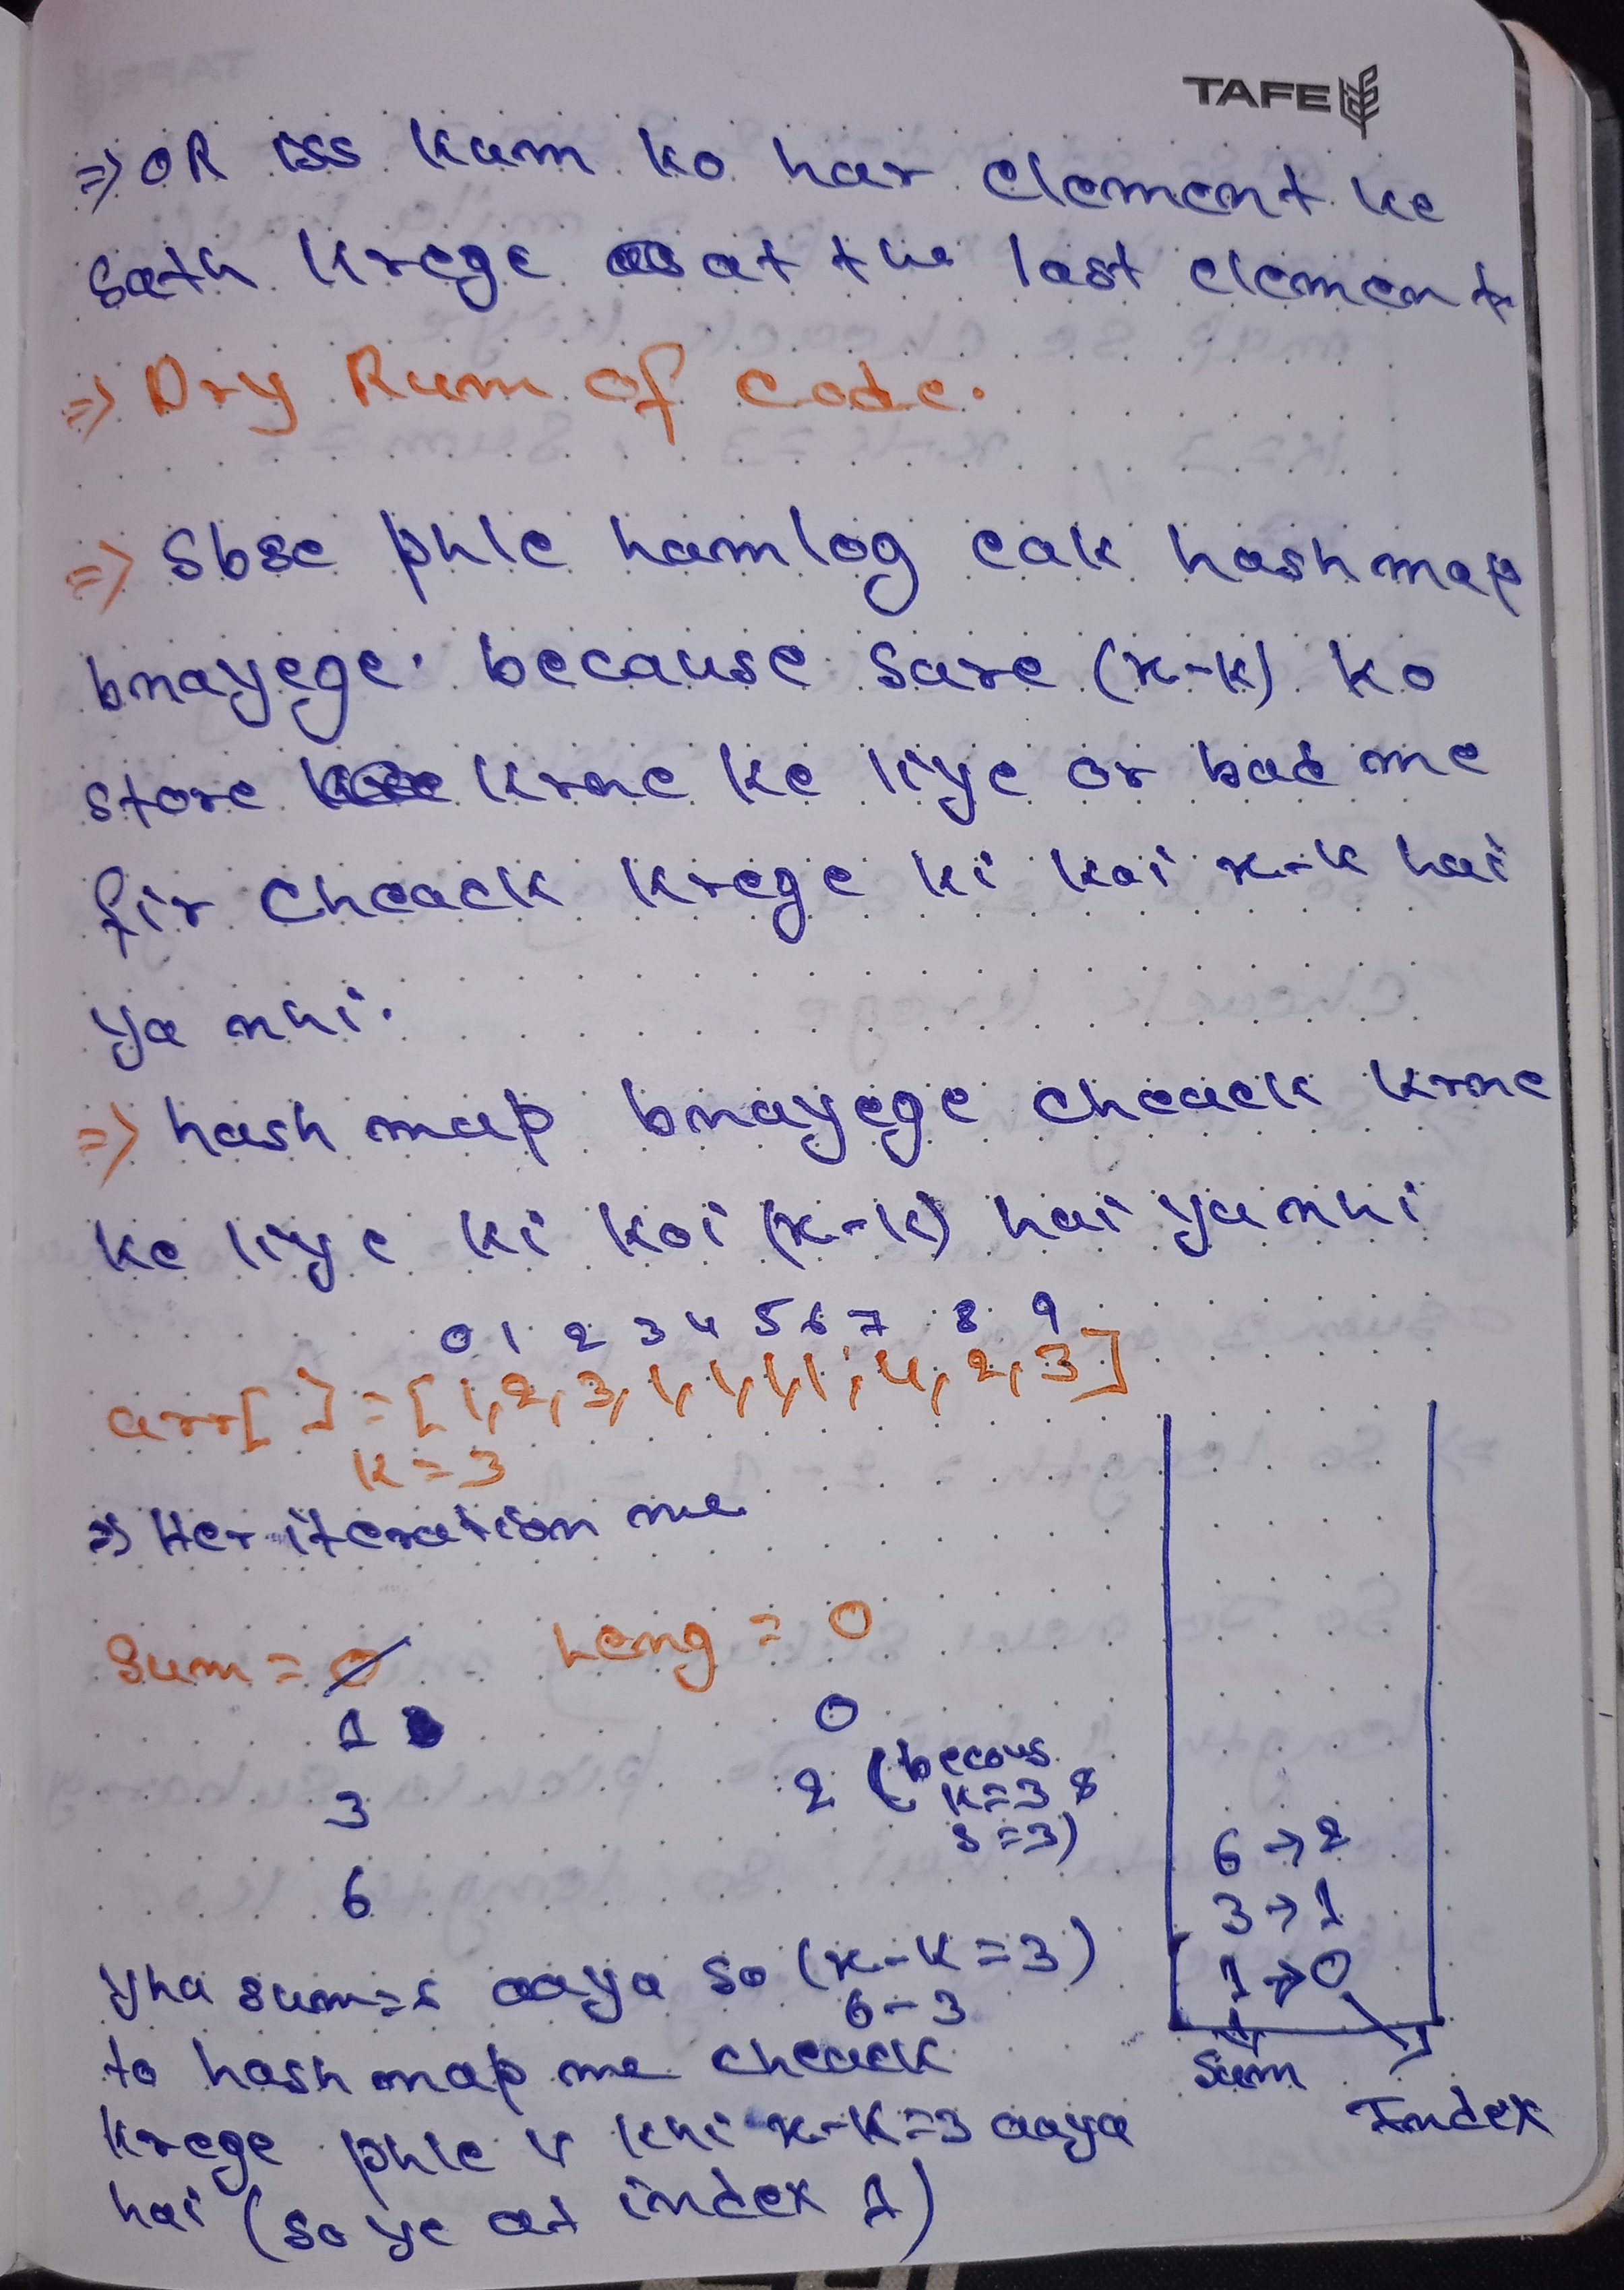 TAFE
=> OR iss kam ko har element ke
sath krege at the last element
=> Dry Rum of code.
=> Sbse phle hamlog eak hashmap
bnayege. because sare (x-k) ko
store krne ke liye or bad me
fir cheack krege ki koi x-k hai
ya nhi.
=> hash map bnayege cheack krne
ke liye ki koi (x-k) hai ya nhi
0 1 2 3 4 5 6 7 8 9
arr[ ] = [1,2,3,1,1,1,1,4,2,3]
k=3
=> Her iteration me
Sum = 0 Leng = 0
1 0
3 2 (becous
k=3 &
s=3)
6
6 → 2
3 → 1
1 → 0
Sum
Index
yha sum=6 aaya so (x-k=3)
6-3
to hash map me cheack
krege phle v khi x-k=3 aaya
hai (so ye at index 1)